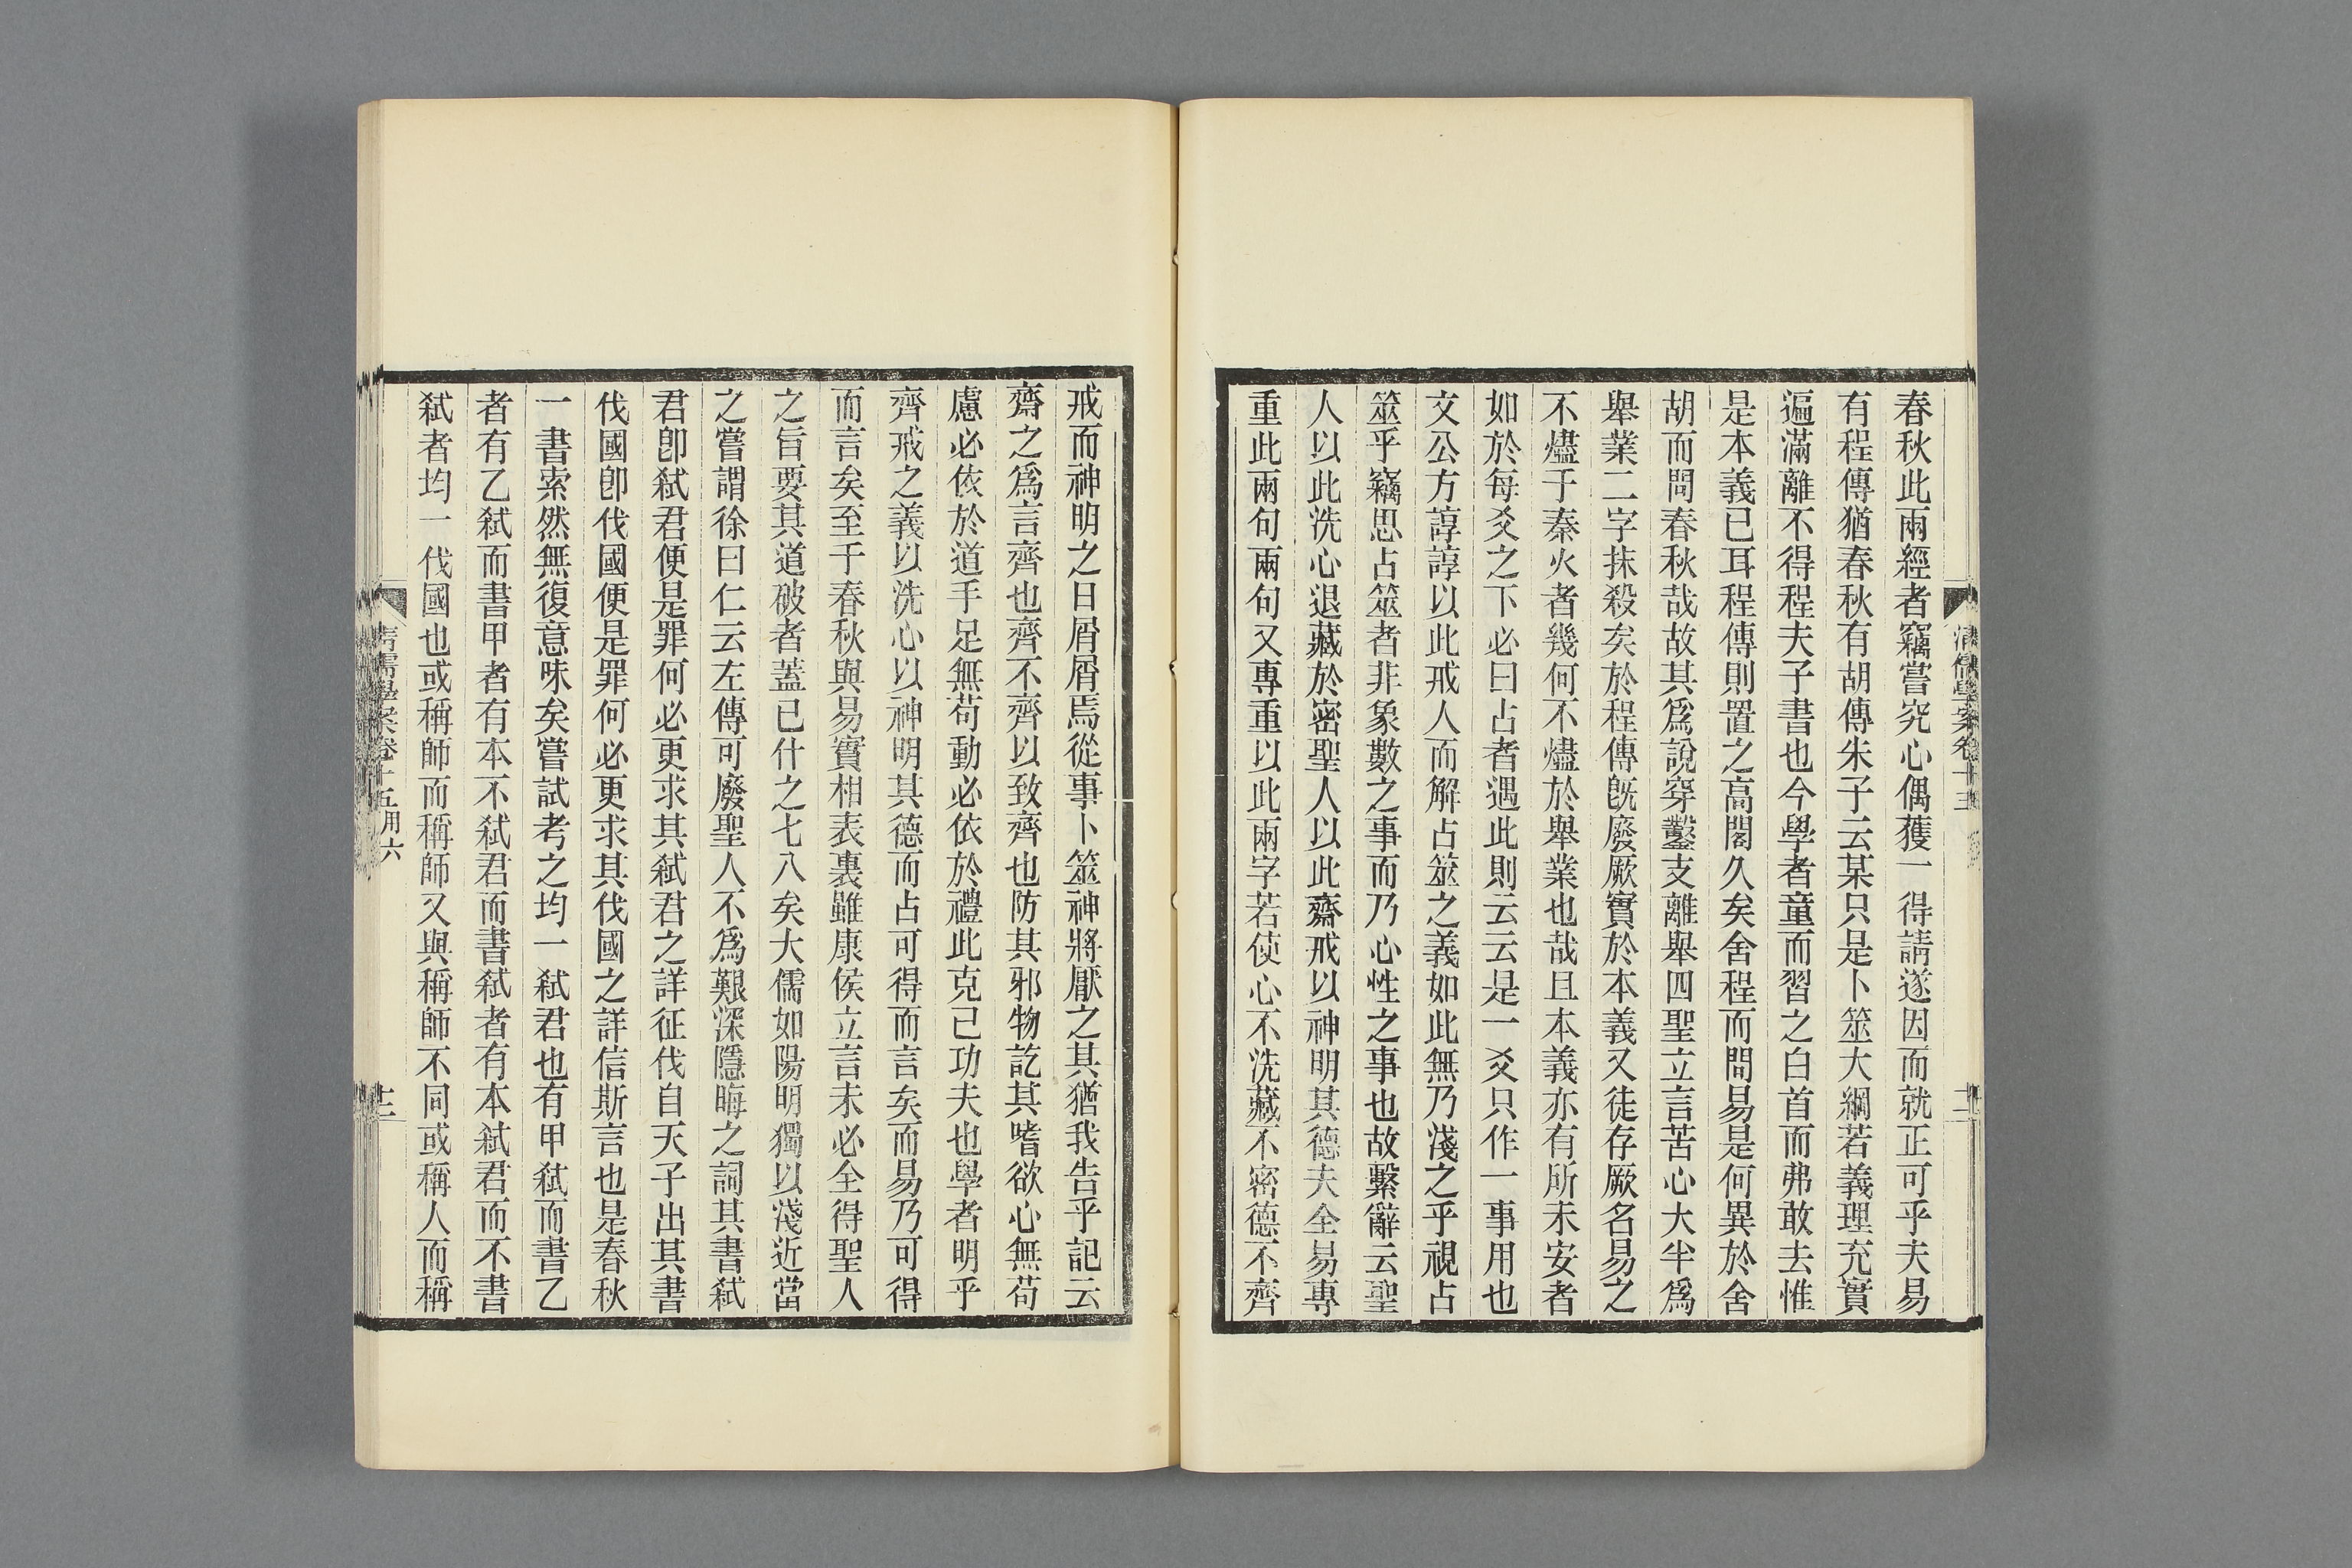 春秋此兩經者竊嘗究心偶獲一得請遂因而就正可乎夫易
有程傳猶春秋有胡傳朱子云某只是卜筮大綱若義理充實
遍滿離不得程夫子書也今學者童而習之白首而弗敢去惟
是本義已耳程傳則置之高閣久矣舍程而問易是何異於舍
胡而問春秋哉故其爲說穿鑿支離舉四聖立言苦心大半爲
舉業二字抹殺矣於程傳旣廢厥實於本義又徒存厥名易之
不燼于秦火者幾何不燼於舉業也哉且本義亦有所未安者
如於每爻之下必曰占者遇此則云云是一爻只作一事用也
文公方諄諄以此戒人而解占筮之義如此無乃淺之乎視占
筮乎竊思占筮者非象數之事而乃心性之事也故繫辭云聖
人以此洗心退藏於密聖人以此齋戒以神明其德夫全易專
重此兩句兩句又專重以此兩字若使心不洗藏不密德不齊
戒而神明之日屑屑焉從事卜筮神將厭之其猶我告乎記云
齋之爲言齊也齊不齊以致齊也防其邪物訖其嗜欲心無苟
慮必依於道手足無苟動必依於禮此克己功夫也學者明乎
齊戒之義以洗心以神明其德而占可得而言矣而易乃可得
而言矣至于春秋與易實相表裏雖康侯立言未必全得聖人
之旨要其道破者蓋已什之七八矣大儒如陽明獨以淺近當
之嘗謂徐曰仁云左傳可廢聖人不爲艱深隱晦之詞其書弑
君卽弑君便是罪何必更求其弑君之詳征伐自天子出其書
伐國卽伐國便是罪何必更求其伐國之詳信斯言也是春秋
一書索然無復意味矣嘗試考之均一弑君也有甲弑而書乙
者有乙弑而書甲者有本不弑君而書弑者有本弑君而不書
弑者均一伐國也或稱師而稱師又與稱師不同或稱人而稱
清儒學案卷十五用六